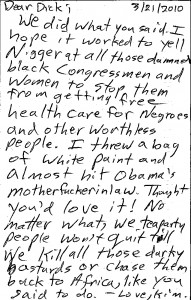 Dear Dick, 3/21/2010
We did what you said. I
hope it worked to yell
Nigger at all those damned
black Congressmen and
Women to stop them
from getting free
health Care for Negroes
and other Worthless
people. I threw a bag
of white paint and
almost hit Obama's
motherfuckerinlaw. Thought
you'd love it! No
matter what, we teaparty
people won't quit till
We kill all those darky
bastards or chase them
back to Africa, like you
said to do. - Love, Kin.